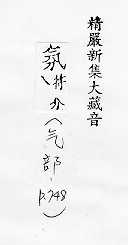 精嚴新集大藏音
氛符分(气部,p.748)